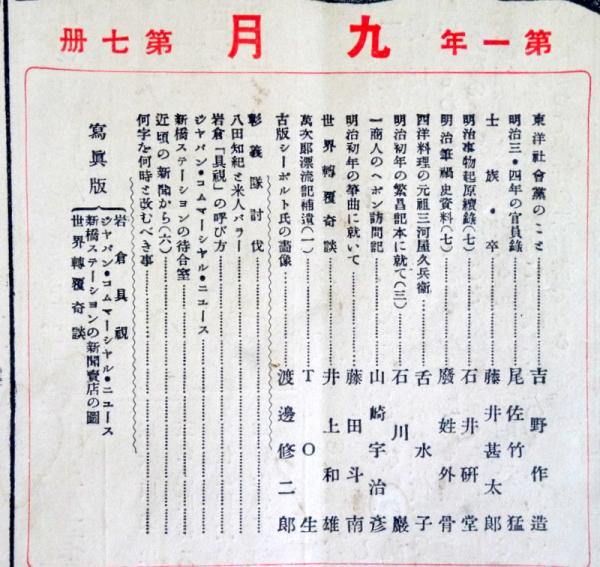 第一年 九月 第七册
東洋社會黨のこと…………吉野作造
明治三・四年の官員錄…………尾佐竹猛
士族・卒…………藤井甚太郎
明治事物起原續錄(七)…………石井硏堂
明治筆禍史資料(七)…………廢姓外骨
西洋料理の元祖三河屋久兵衞…………舌水子
明治初年の繁昌記本に就て(三)…………石川巖
一商人のヘボン訪問記…………山崎宇治彥
明治初年の箏曲に就いて…………藤田斗南
世界轉覆奇談…………井上和雄
萬次郎漂流記補遺(一)…………TO生
古版シーボルト氏の畵像…………渡邊修二郎
彰義隊討伐…………
八田知紀と米人バラー…………
岩倉「具視」の呼び方…………
ジヤパン・コムマーシヤル・ニユース…………
新橋ステーシヨンの待合室…………
近頃の新聞から(六)…………
何字を何時と改むべき事…………
寫眞版
岩倉具視
ジヤパン・コムマーシヤル・ニユース
新橋ステーシヨンの新聞賣店の圖
世界轉覆奇談